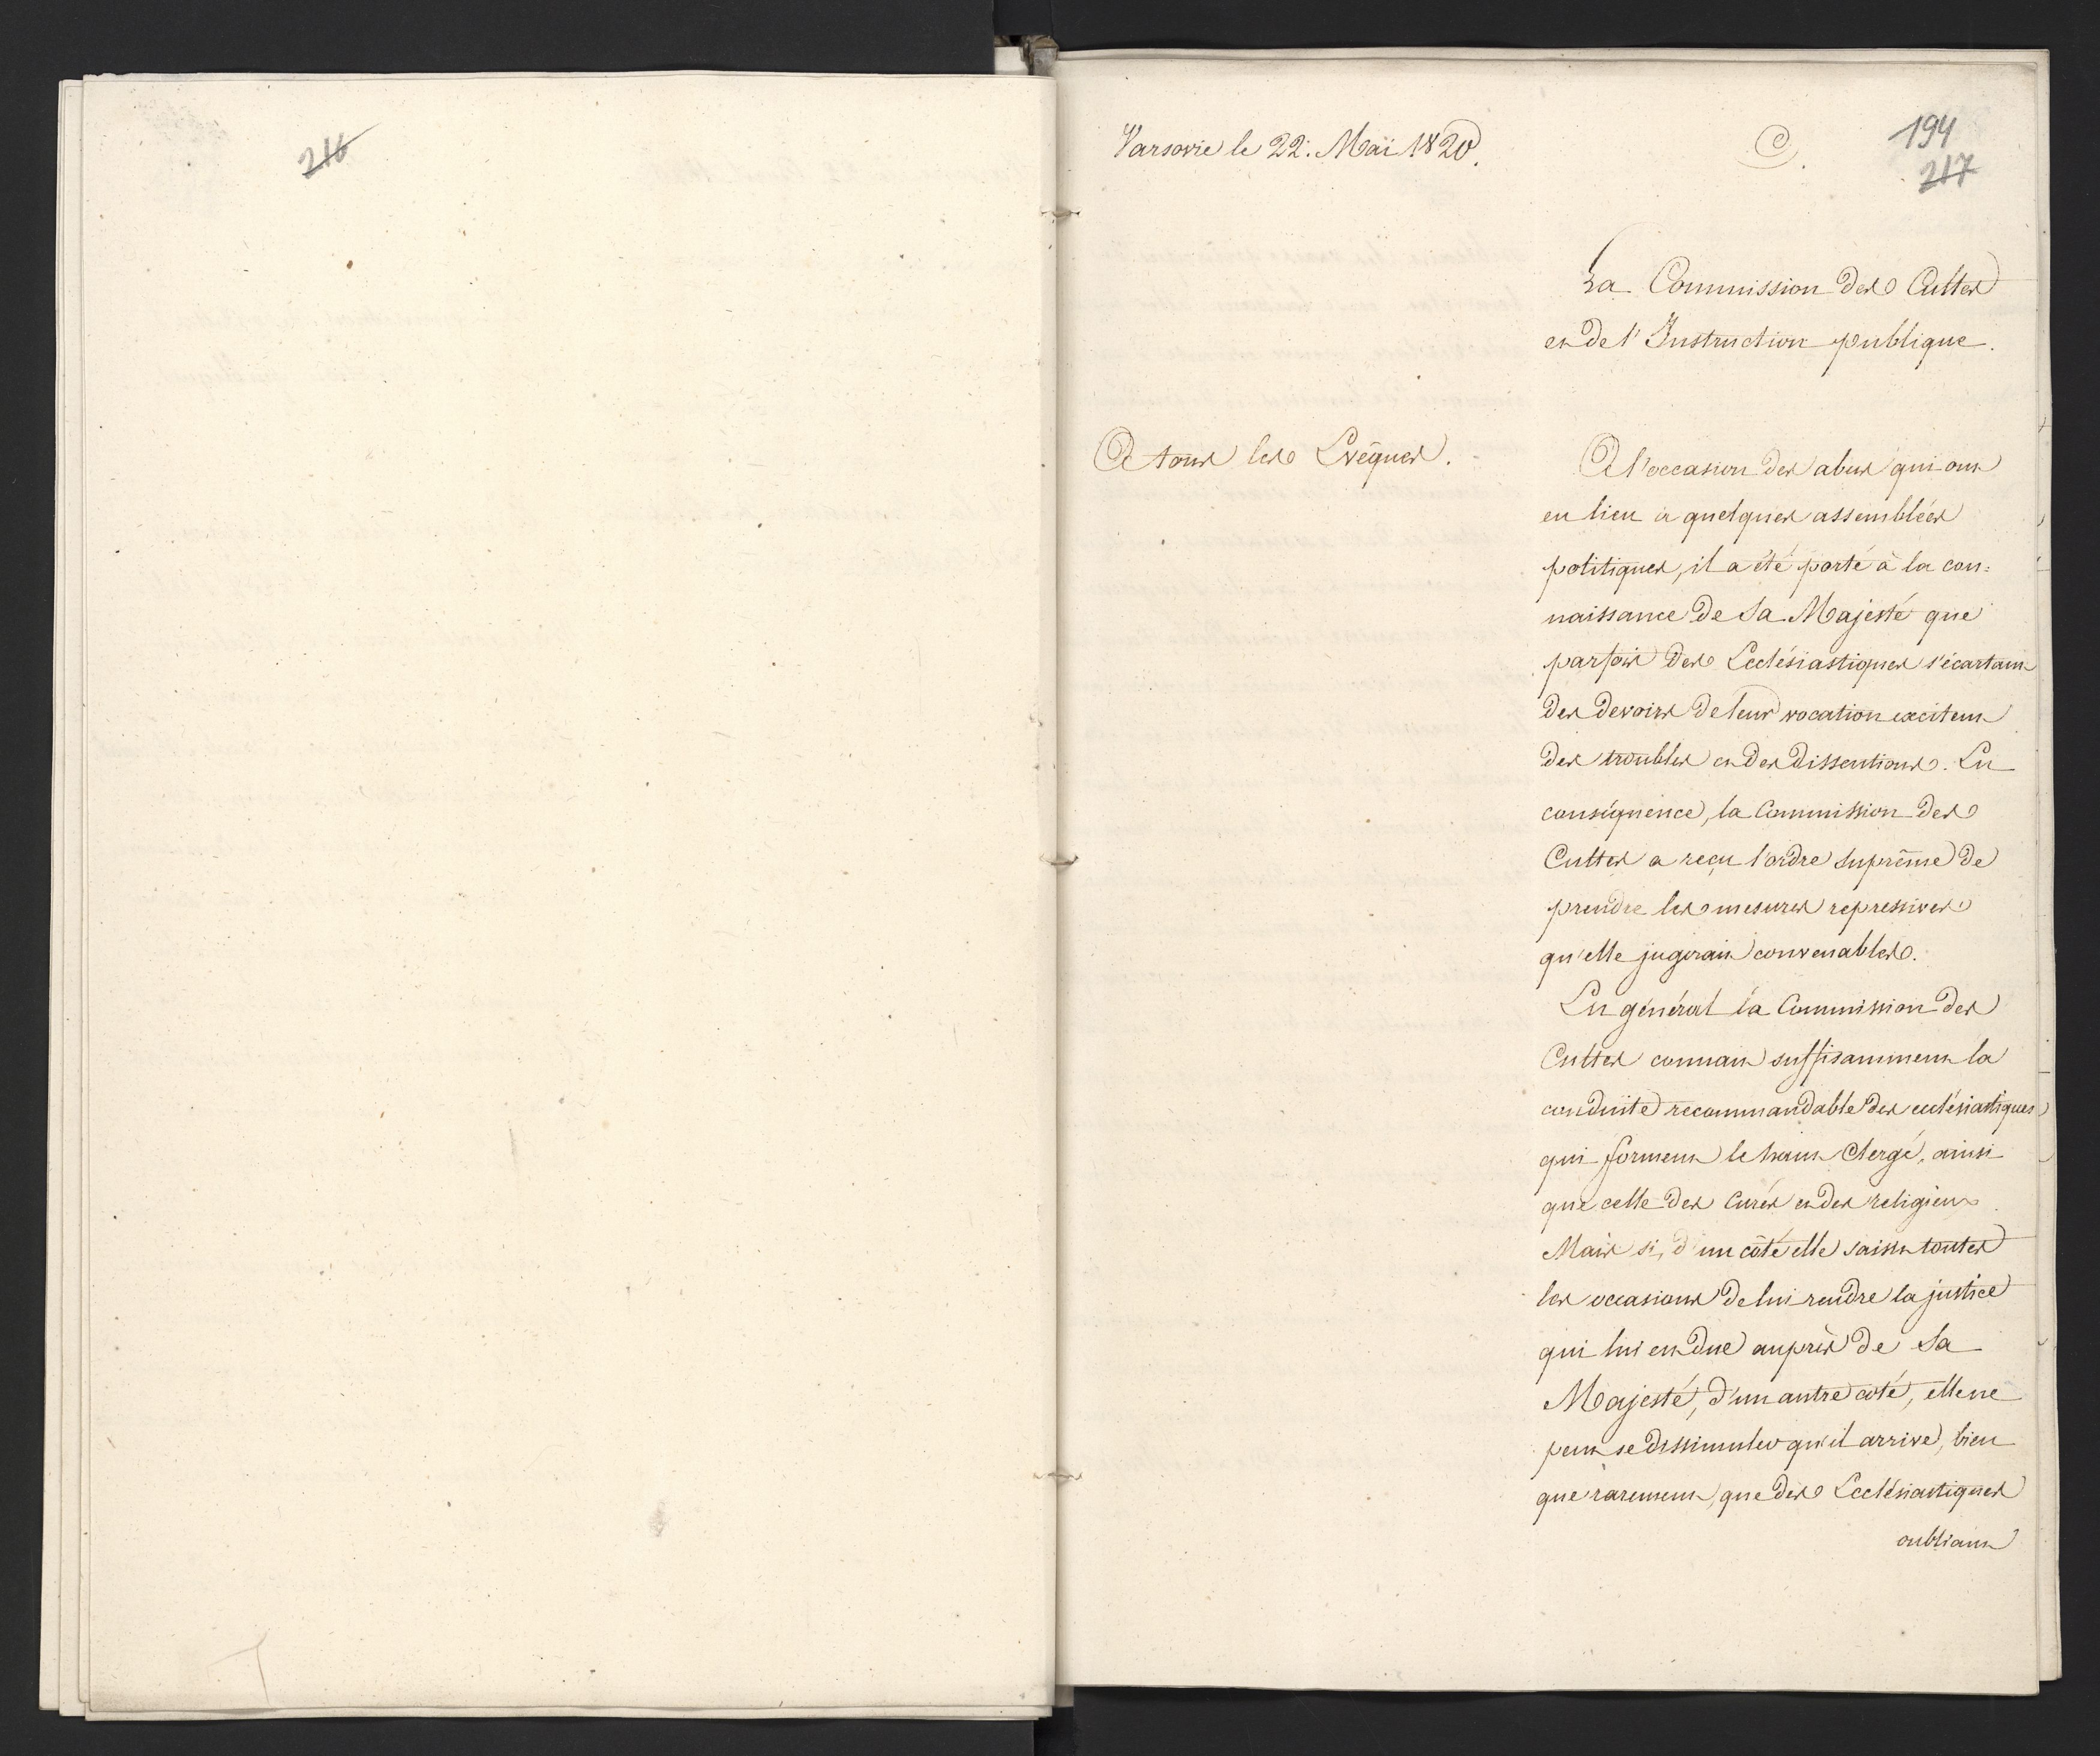 216
Varsovie le 22. Mai 1820.
C.
194
217
La Commission des Cultes
et de l'Instruction publique.
A tous les Evêques.
A l'occasion des abus qui ont
eu lieu à quelques assemblées
politiques, il a été porté à la con=
naissance de Sa Majesté que
parfois des Ecclésiastiques s'écartant
des devoirs de leur vocation excitent
des troubles et des dissentions. En
conséquence, la Commission des
Cultes a reçu l'ordre suprême de
prendre les mesures repressives
qu'elle jugerait convenables.
En général la Commission des
Cultes connait suffisamment la
conduite recommandable des ecclésiastiques
qui forment le haut Clergé, ainsi
que celle des Curés et des religieux.
Mais si, d'un côté elle saisit toutes
les occasions de lui rendre la justice
qui lui est due auprès de Sa
Majesté, d'un autre coté, elle ne
peut se dissimuler qu'il arrive, bien
que rarement, que des Ecclésiastiques
oubliant